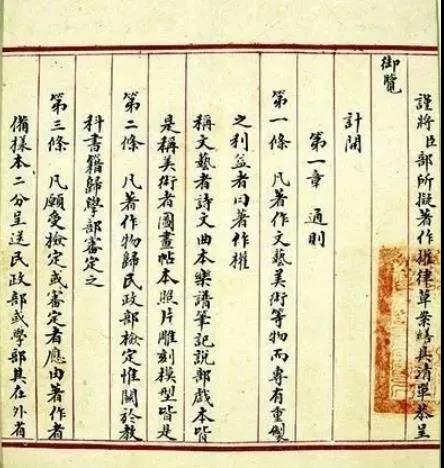 謹將臣部所擬著作權律草案繕具清單恭呈
御覽
計開
第一章 通則
第一條 凡著作文藝美術等物而專有重製
之利益者曰著作權
稱文藝者詩文曲本樂譜筆記說部戲本皆
是稱美術者圖畫帖本照片雕刻模型皆是
第二條 凡著作物歸民政部檢定惟關於教
科書籍歸學部審定之
第三條 凡願受檢定或審定者應由著作者
備樣本二分呈送民政部或學部其在外省